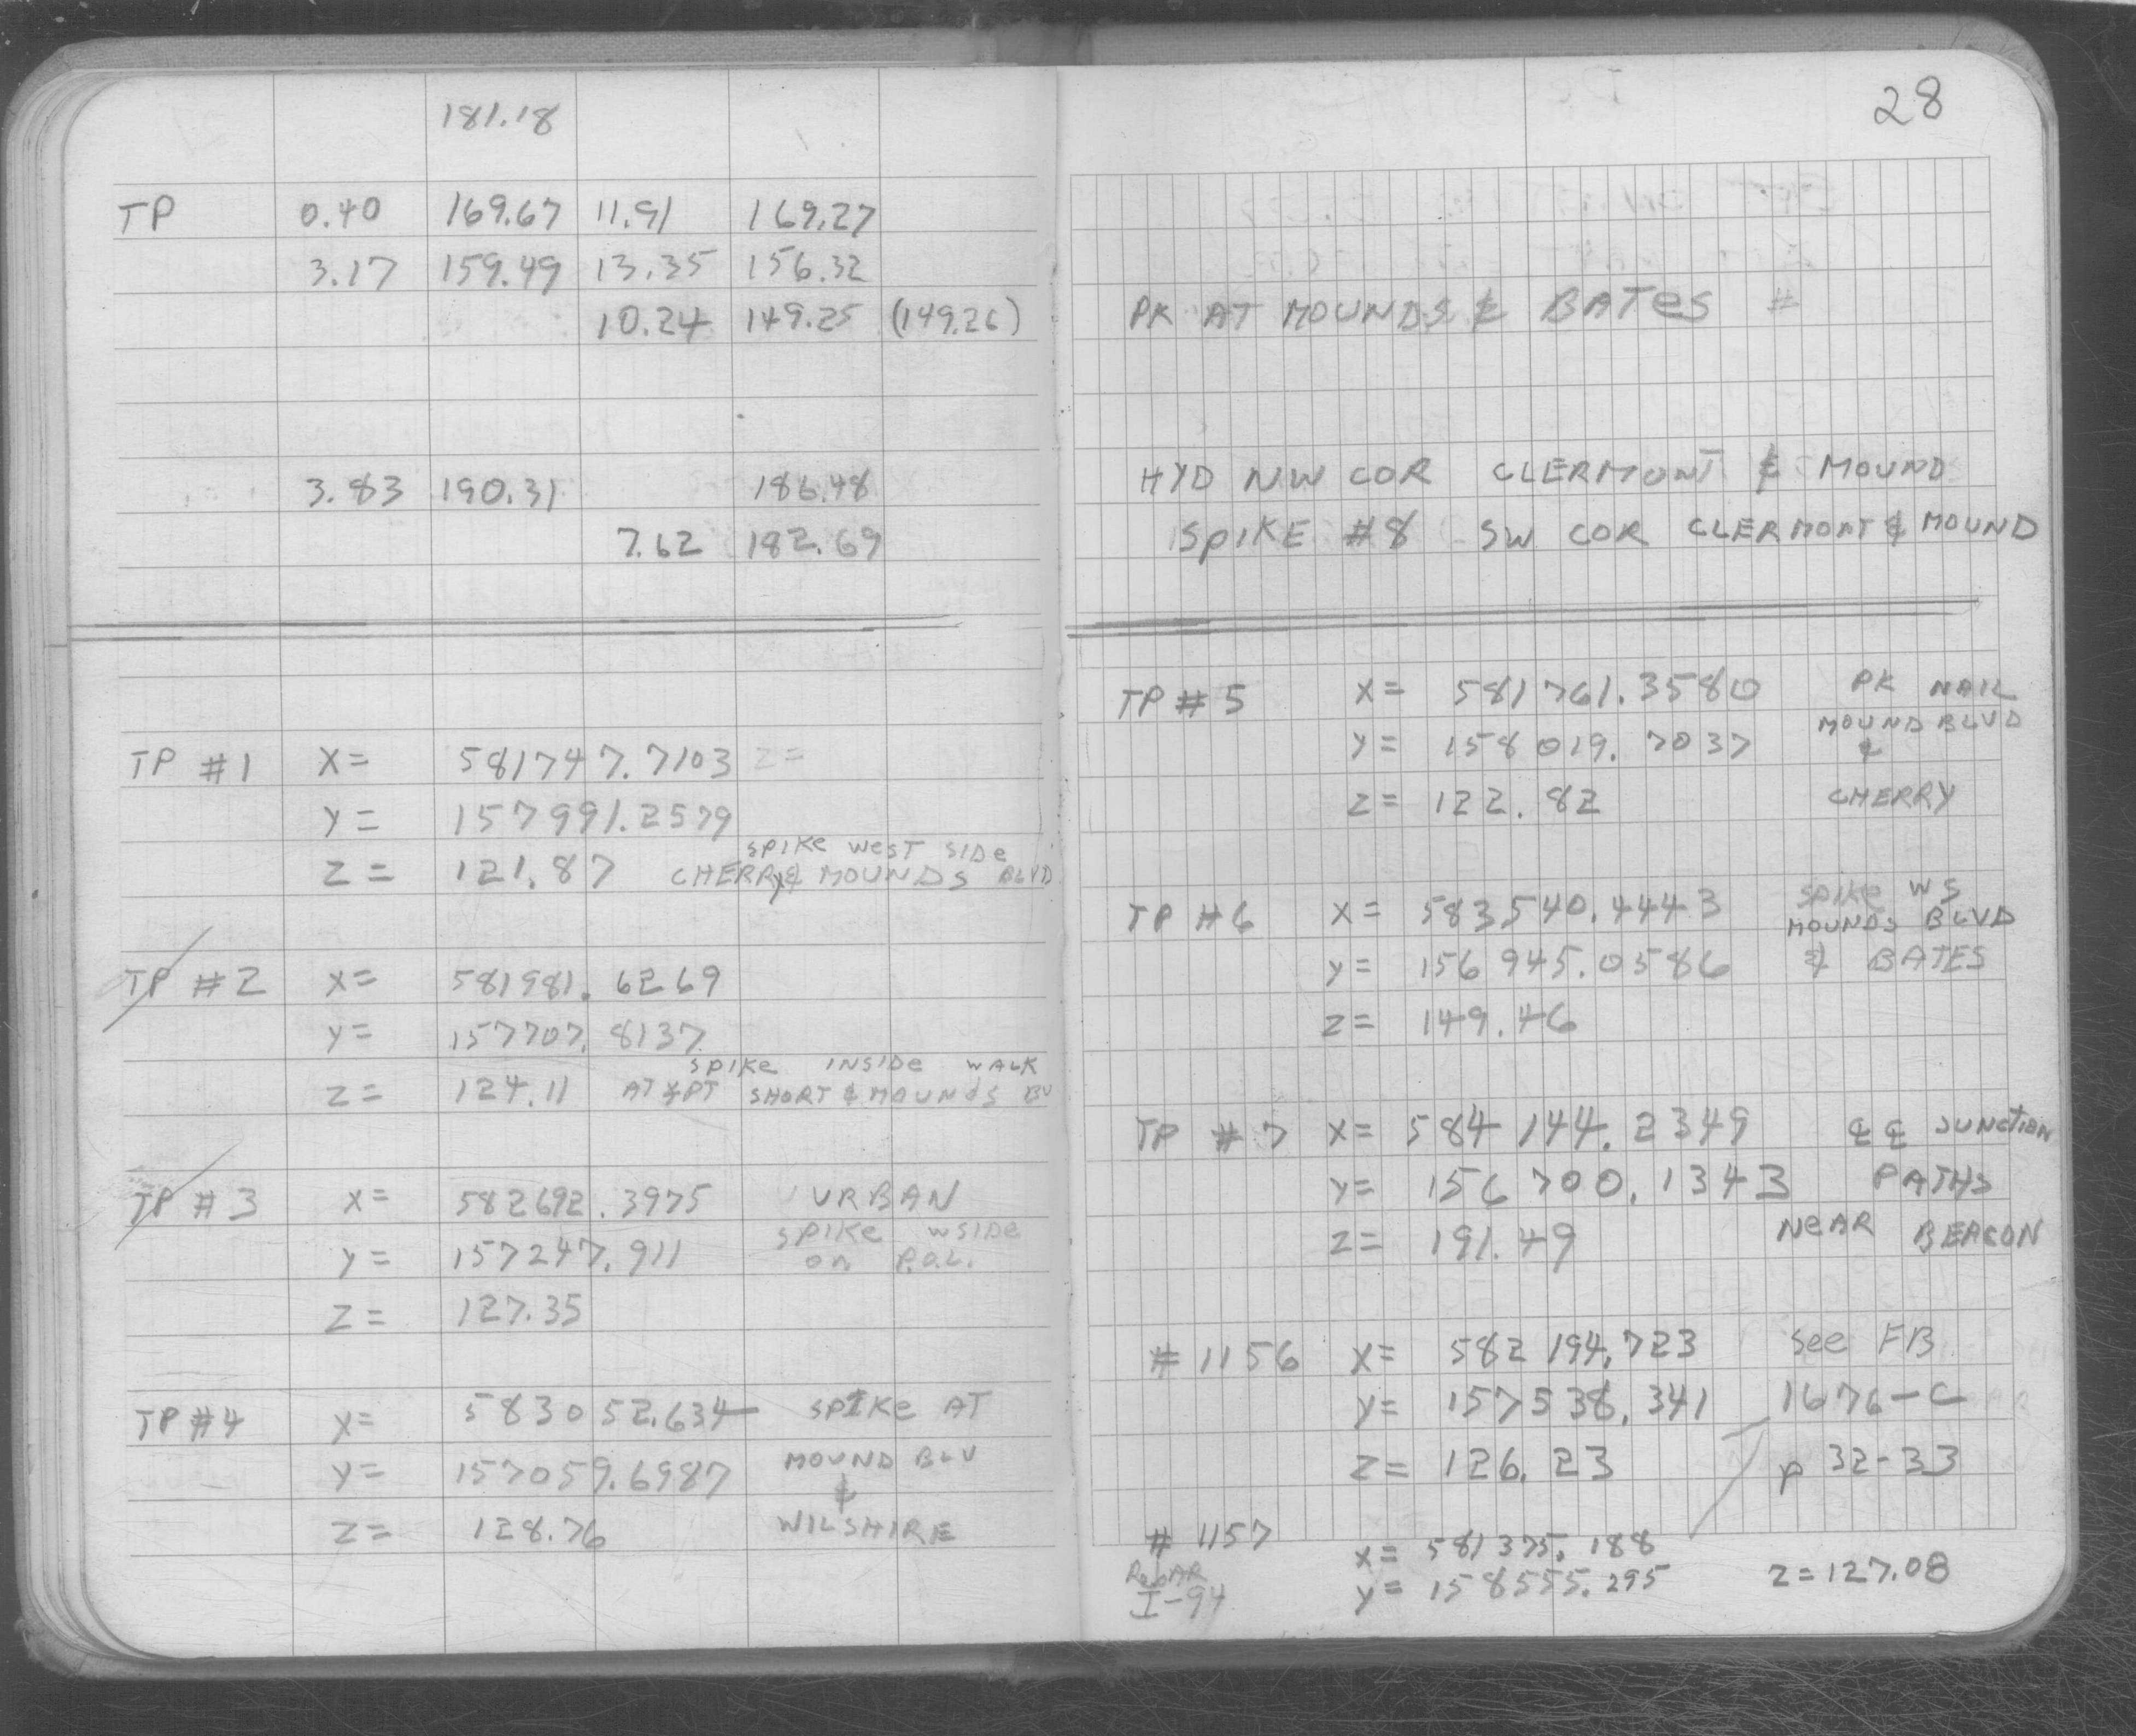 181.18
TP 0.40 169.67 11.91 169.27
3.17 159.49 13.35 156.32
10.24 149.25 (149.26)
3.83 190.31 186.48
7.62 182.69
TP #1 X= 581747.7103 Z=
Y= 157991.2579
Z= 121.87
SPIKE WEST SIDE
CHERRY & MOUNDS BLVD
TP #2 X= 581981.6269
Y= 157707.8137
SPIKE INSIDE WALK
Z= 124.11 AT ∡PT SHORT & MOUNDS BV
TP #3 X= 582692.3975 URBAN
Y= 157247.911 SPIKE WSIDE
ON P.O.L.
Z= 127.35
TP #4 X= 583052.634 SPIKE AT
Y= 157059.6987 MOUND BLV
&
Z= 128.76 WILSHIRE
28
PK AT MOUNDS & BATES #
HYD NW COR CLERMONT & MOUND
SPIKE #8 SW COR CLERMONT & MOUND
TP #5 X= 581761.3580 PK NAIL
MOUND BLVD
Y= 158019.7037 &
Z= 122.82 CHERRY
TP #6 X= 583540.4443 SPIKE WS
MOUNDS BLVD
Y= 156945.0586 & BATES
Z= 149.46
TP #7 X= 584144.2349 ℄ ℄ JUNCTION
Y= 156700.1343 PATHS
Z= 191.49 NEAR BEACON
#1156 X= 582194.723 See FB
Y= 157538.341 1676-C
Z= 126.23 p 32-33
#1157 X= 581375.188
REBAR Y= 158555.295 Z=127.08
I-94